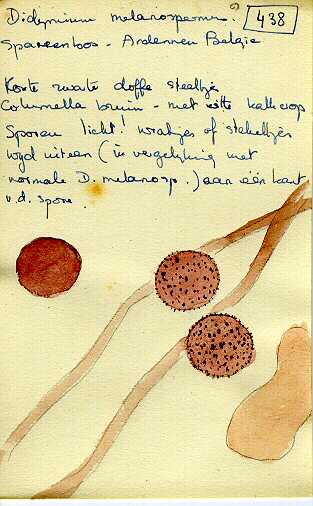 Didymium melanospermum. 438
Sparrenbos - Ardennen België
Korte zwarte doffe steeltjes
Columella bruin - met witte kalk erop
Sporen licht! wratjes of stekeltjes
wijd uiteen (in vergelijking met
normale D. melanosp.) aan één kant
v.d. spore.